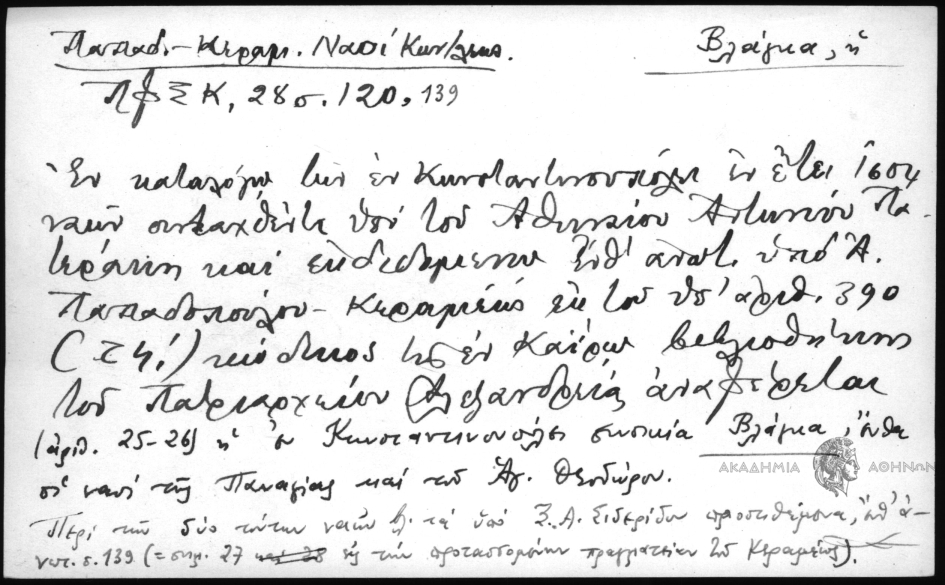 Παπαδ.-Κεραμ. Ναοί Κων/λεως.
Βλάγκα, ἡ
ΠΦΣΚ, 28 σ. 120, 139
Ἐν καταλόγῳ τῶν ἐν Κωνσταντινουπόλει ἐν ἔτει 1604
ναῶν συνταχθέντι ὑπὸ τοῦ Ἀθηναίου Ἀντωνίου Πα-
τεράκη καὶ ἐκδεδομένῳ ἔνθ' ἀνωτ. ὑπὸ Ἀ.
Παπαδοπούλου-Κεραμέως ἐκ τοῦ ὑπ' ἀριθ. 390
κώδικος τῆς ἐν Καΐρῳ βιβλιοθήκης
τοῦ Πατριαρχείου Ἀλεξανδρείας ἀναφέρεται
(ἀριθ. 25-26) ἡ ἐν Κωνσταντινουπόλει συνοικία Βλάγκα, ἔνθα
οἱ ναοὶ τῆς Παναγίας καὶ τοῦ Ἁγ. Θεοδώρου.
ΑΚΑΔΗΜΙΑ ΑΘΗΝΩΝ
Περὶ τῶν δύο τούτων ναῶν βλ. τὰ ὑπὸ Ξ. Α. Σιδερίδου προστιθέμενα, ἔνθ' ἀ-
νωτ. σ. 139 (= σημ. 27 καὶ 28 εἰς τὴν προτασσομένην πραγματείαν τοῦ Κεραμέως).